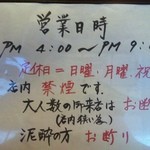 営業日時
PM 4:00〜PM 9:
定休日=日曜、月曜、祝
店内 禁煙です。
大人数の御来店はお断り
(店内狭い為)
泥酔の方 お断り